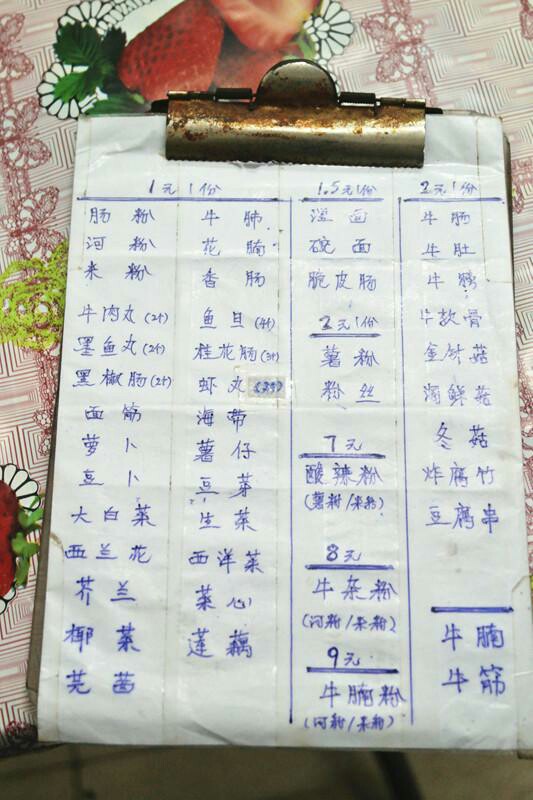 1元1份
肠粉
河粉
米粉
牛肉丸(2个)
墨鱼丸(2个)
黑椒肠(2个)
面筋
萝卜
豆卜
大白菜
西兰花
芥兰
椰菜
芫茜
牛肺
花腩
香肠
鱼旦(4个)
桂花肠(3个)
虾丸
海带
薯仔
豆芽
生菜
西洋菜
菜心
莲藕
1.5元1份
湿面
碗面
脆皮肠
2元1份
薯粉
粉丝
7元
酸辣粉
(薯粉/米粉)
8元
牛杂粉
(河粉/米粉)
9元
牛腩粉
(河粉/米粉)
2元1份
牛肠
牛肚
牛膀
牛软骨
金针菇
海鲜菇
冬菇
炸腐竹
豆腐串
牛腩
牛筋